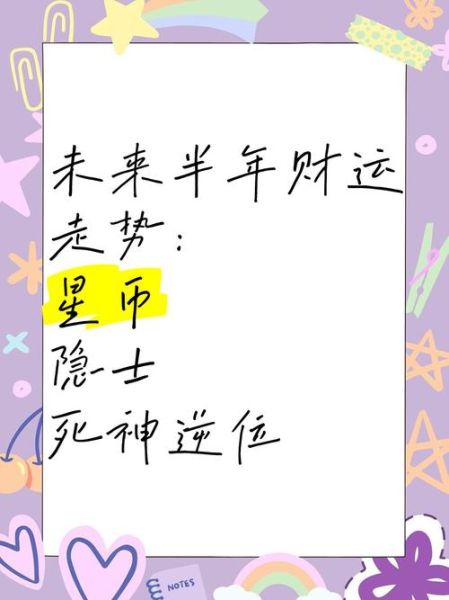 未来半年财运
走势:
星币
隐士
死神逆位
NOTES